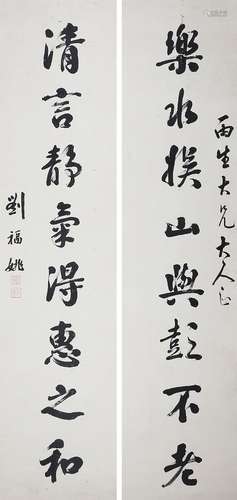 雨生大兄大人正
樂水娛山與彭不老
清言靜氣得惠之和
劉福姚